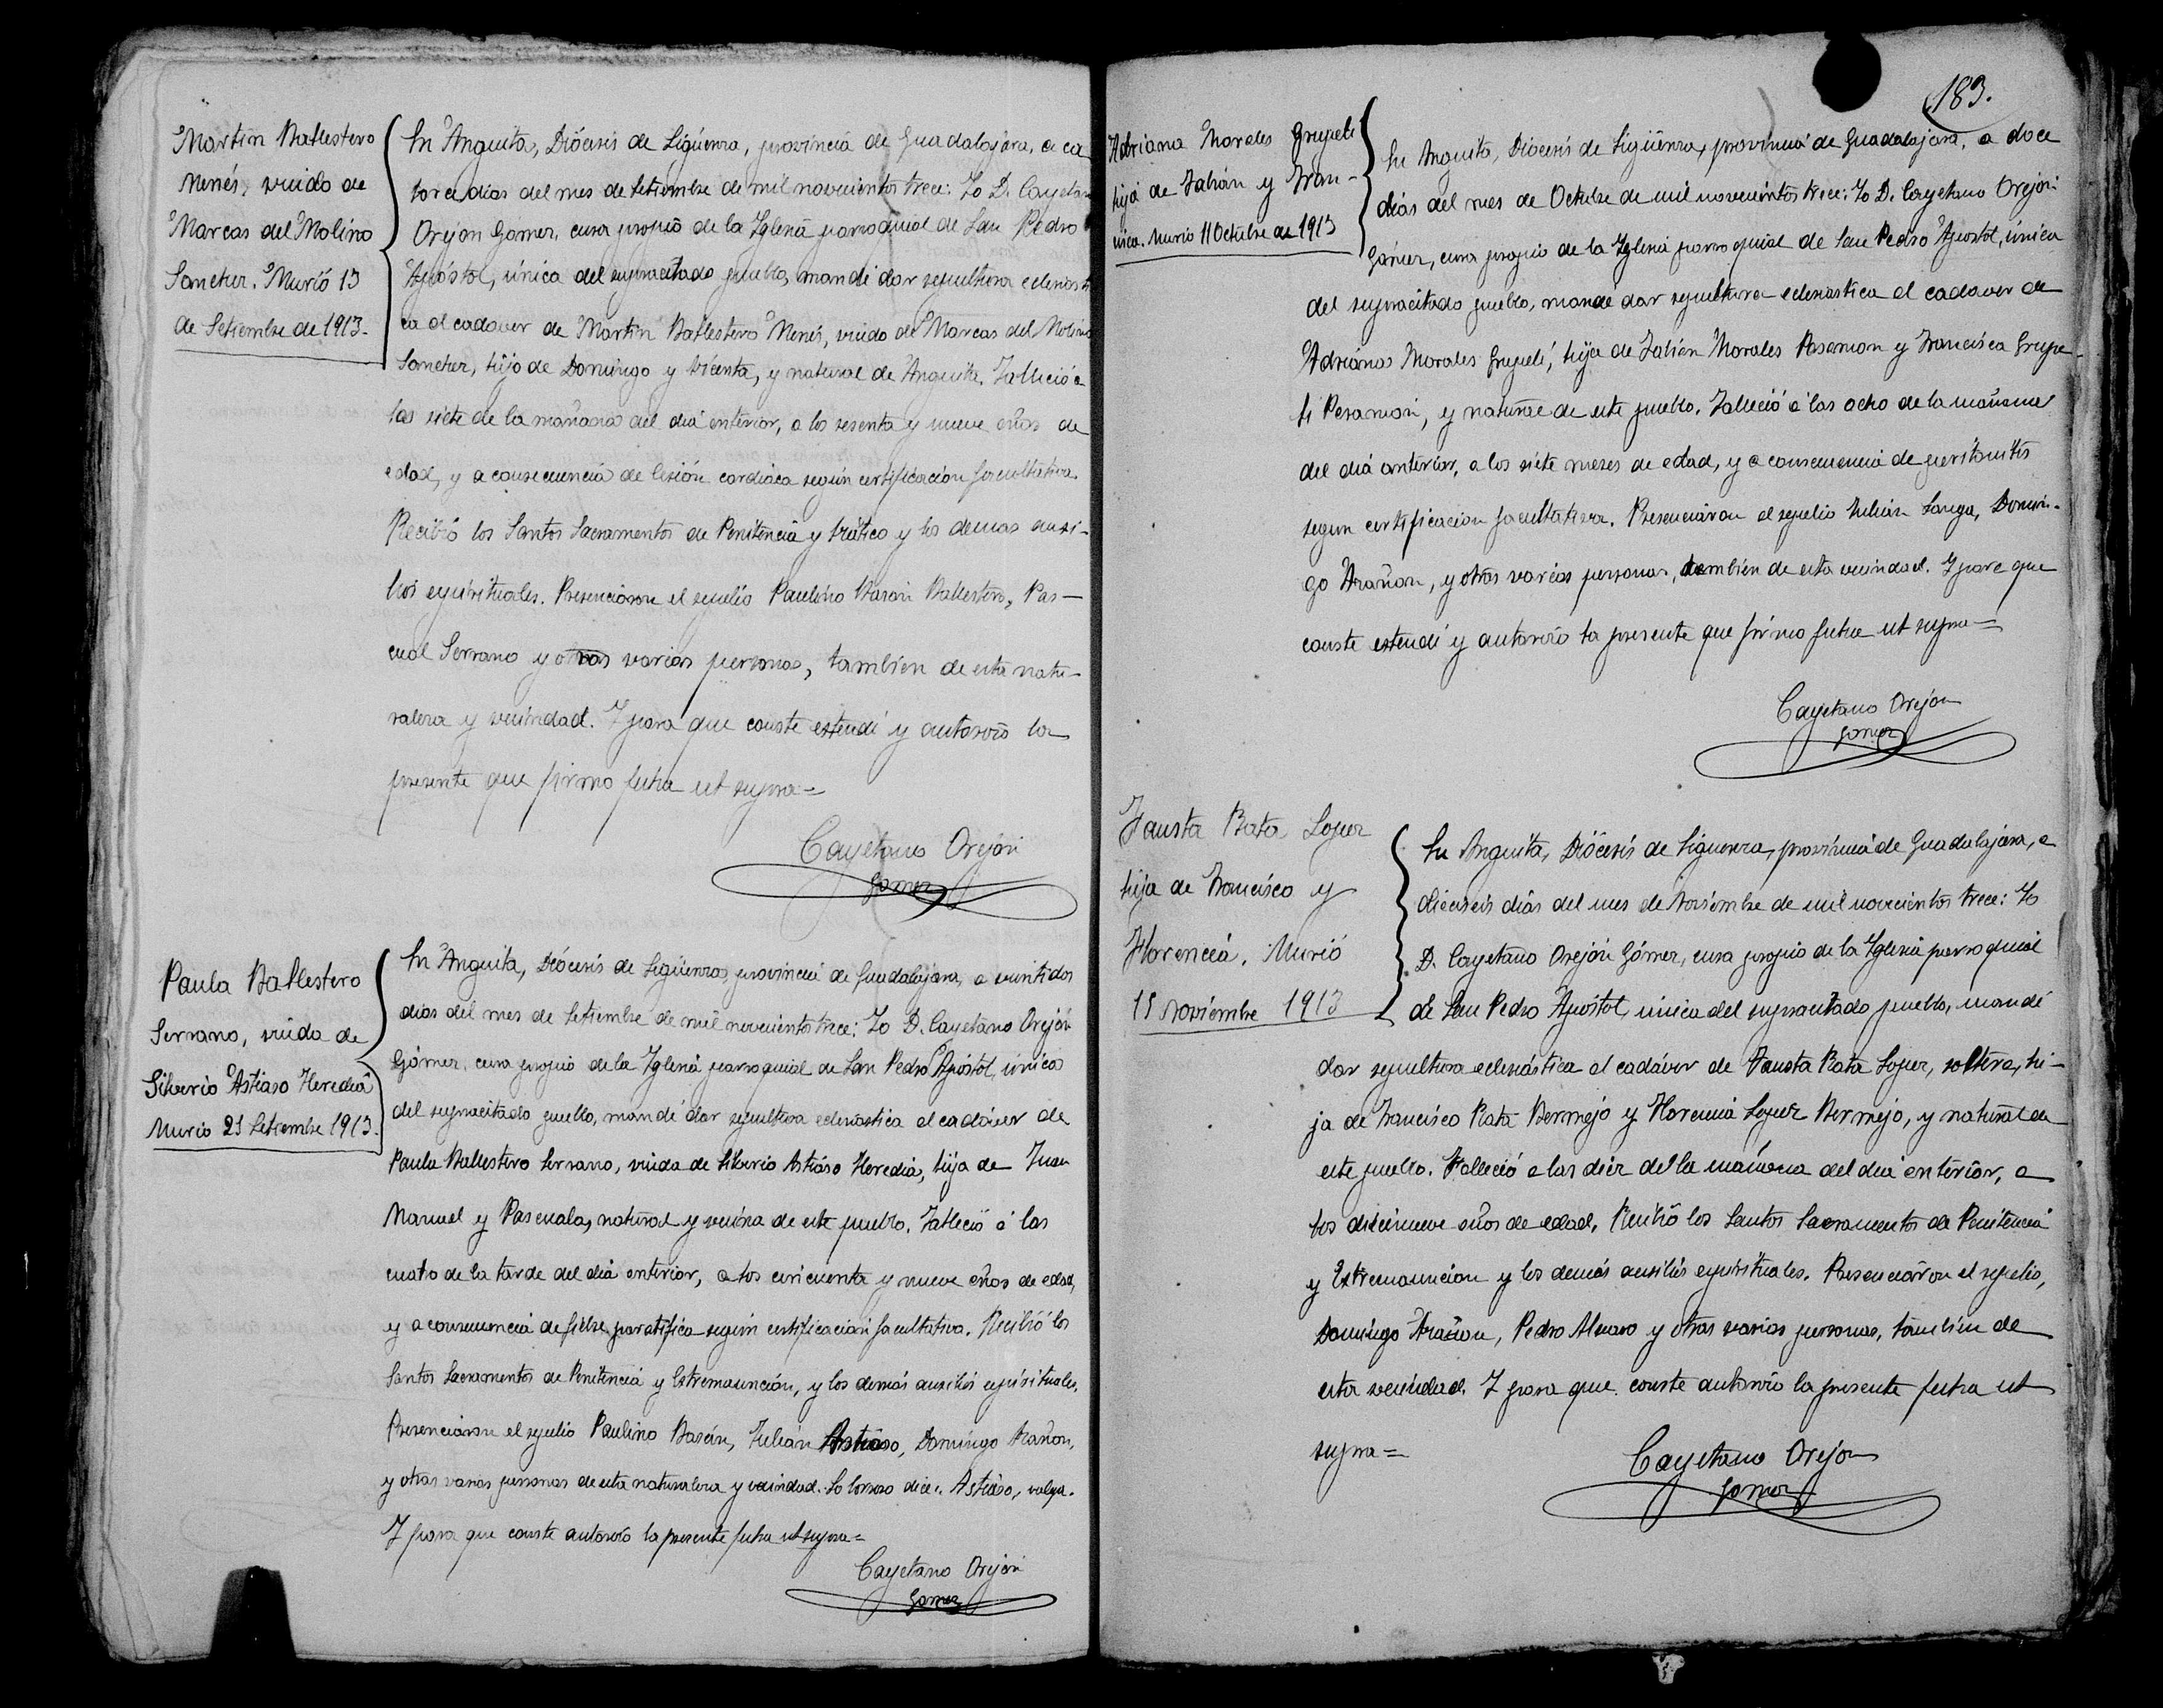 Martin Ballestero
Menés, viudo de
Marcas del Molino
Sanchez. Murió 13
de Setiembre de 1913.
En Anguita, Diócesis de Sigüenza, provincia de Guadalajara, a ca
torce dias del mes de Setiembre de mil novecientos trece: Yo D. Cayetano
Orejon Gómez, cura propio de la Iglesia parroquial de San Pedro
Apóstol, única del supracitado pueblo, mandé dar sepultura eclesiásti
ca al cadaver de Martin Ballestero Menés, viudo de Marcas del Molino
Sanchez, hijo de Domingo y Vicenta, y natural de Anguita. Falleció a
las siete de la mañana del dia anterior, a los sesenta y nueve años de
edad, y a consecuencia de lesión cardiaca según certificación facultativa.
Recibió los Santos Sacramentos de Penitencia y Viático y los demas auxi-
lios espirituales. Presenciaron el sepelio Paulino Basán Ballestero, Pas-
cual Serrano y otras varias personas, tambien de esta natu-
raleza y vecindad. Y para que conste estendí y autorizo la
presente que firmo fecha ut supra=
Cayetano Orejón
Gomez
Paula Ballestero
Serrano, viuda de
Silverio Astiaso Heredia
Murio 21 Setiembre 1913.
En Anguita, Diócesis de Sigüenza, provincia de Guadalajara, a veintidos
dias del mes de Setiembre de mil novecientos trece: Yo D. Cayetano Orejón
Gómez, cura propio de la Iglesia parroquial de San Pedro Apóstol, única
del supracitado pueblo, mandé dar sepultura eclesiástica al cadáver de
Paula Ballestero Serrano, viuda de Silverio Astiaso Heredia, hija de Juan
Manuel y Pascuala, natural y vecina de este pueblo. Falleció á las
cuatro de la tarde del dia anterior, a los cincuenta y nueve años de edad,
y a consecuencia de fiebre paratífica según certificacion facultativa. Recibió los
Santos Sacramentos de Penitencia y Estremaunción, y los demás auxilios espirituales.
Presenciaron el sepelio Paulino Basán, Julián Astiaso, Domingo Arañon,
y otras varias personas de esta naturaleza y vecindad. Lo borroso dice: Astiaso, valga.
Y para que conste autorizo la presente fecha ut supra=
Cayetano Orejón
Gomez
183.
Adriana Morales Grupeli
hija de Julián y Fran-
cisca. Murio 11 Octubre de 1913
En Anguita, Diócesis de Sigüenza, provincia de Guadalajara, a doce
dias del mes de Octubre de mil novecientos trece: Yo D. Cayetano Orejón
Gómez, cura propio de la Iglesia parroquial de San Pedro Apostol, única
del supracitado pueblo, mandé dar sepultura eclesiastica al cadaver de
Adriana Morales Grupeli, hija de Julian Morales Pasamon y Francisca Grupe-
li Pasamón, y natural de este pueblo. Falleció a las ocho de la mañana
del dia anterior, a los siete meses de edad, y a consecuencia de peritonitis
segun certificacion facultativa. Presenciaron el sepelio Julián Langa, Domin-
go Arañon, y otras varias personas, tambien de esta vecindad. Y para que
conste estendí y autorizo la presente que firmo fecha ut supra=
Cayetano Orejon
Gomez
Fausta Rata Lopez
hija de Francisco y
Florencia. Murió
15 Noviembre 1913
En Anguita, Diócesis de Siguenza, provincia de Guadalajara, a
dieciseis dias del mes de Noviembre de mil novecientos trece: Yo
D. Cayetano Orejón Gómez, cura propio de la Iglesia parroquial
de San Pedro Apostol, única del supracitado pueblo, mandé
dar sepultura eclesiástica al cadáver de Fausta Rata Lopez, soltera, hi-
ja de Francisco Rata Bermejo y Florencia Lopez Bermejo, y natural de
este pueblo. Falleció a las diez de la mañana del dia anterior, a
los diecinueve años de edad. Recibió los Santos Sacramentos de Penitencia
y Estremauncion y los demás auxilios espirituales. Presenciaron el sepelio,
Domingo Arañon, Pedro Alvaro y otras varias personas, tambien de
esta vecindad. Y para que conste autorizo la presente fecha ut
supra=
Cayetano Orejon
Gomez